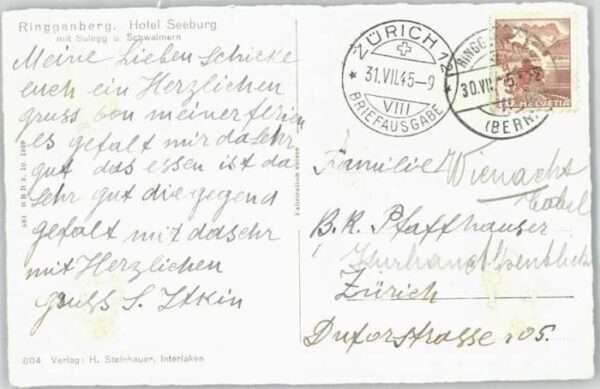 Ringgenberg. Hotel Seeburg
mit Sulegg u. Schwalmern
Meine Lieben Schicke
euch ein Herzlichen
gruss von meiner ferien
es gefalt mir da sehr
gut das essen ist da
sehr gut die gegend
gefalt mit da sehr
mit Herzlichen
gruss S. Itkin
804 Verlag: H. Steinhauer, Interlaken
ZÜRICH 12
31.VII.45-9
VIII
BRIEFAUSGABE
RINGG
30.VII.
(BERN)
HELVETIA
Familie Wienacht
Tobel
B.K. Pfaffhauser
Kurhaus
Zürich
Duforstrasse 205.